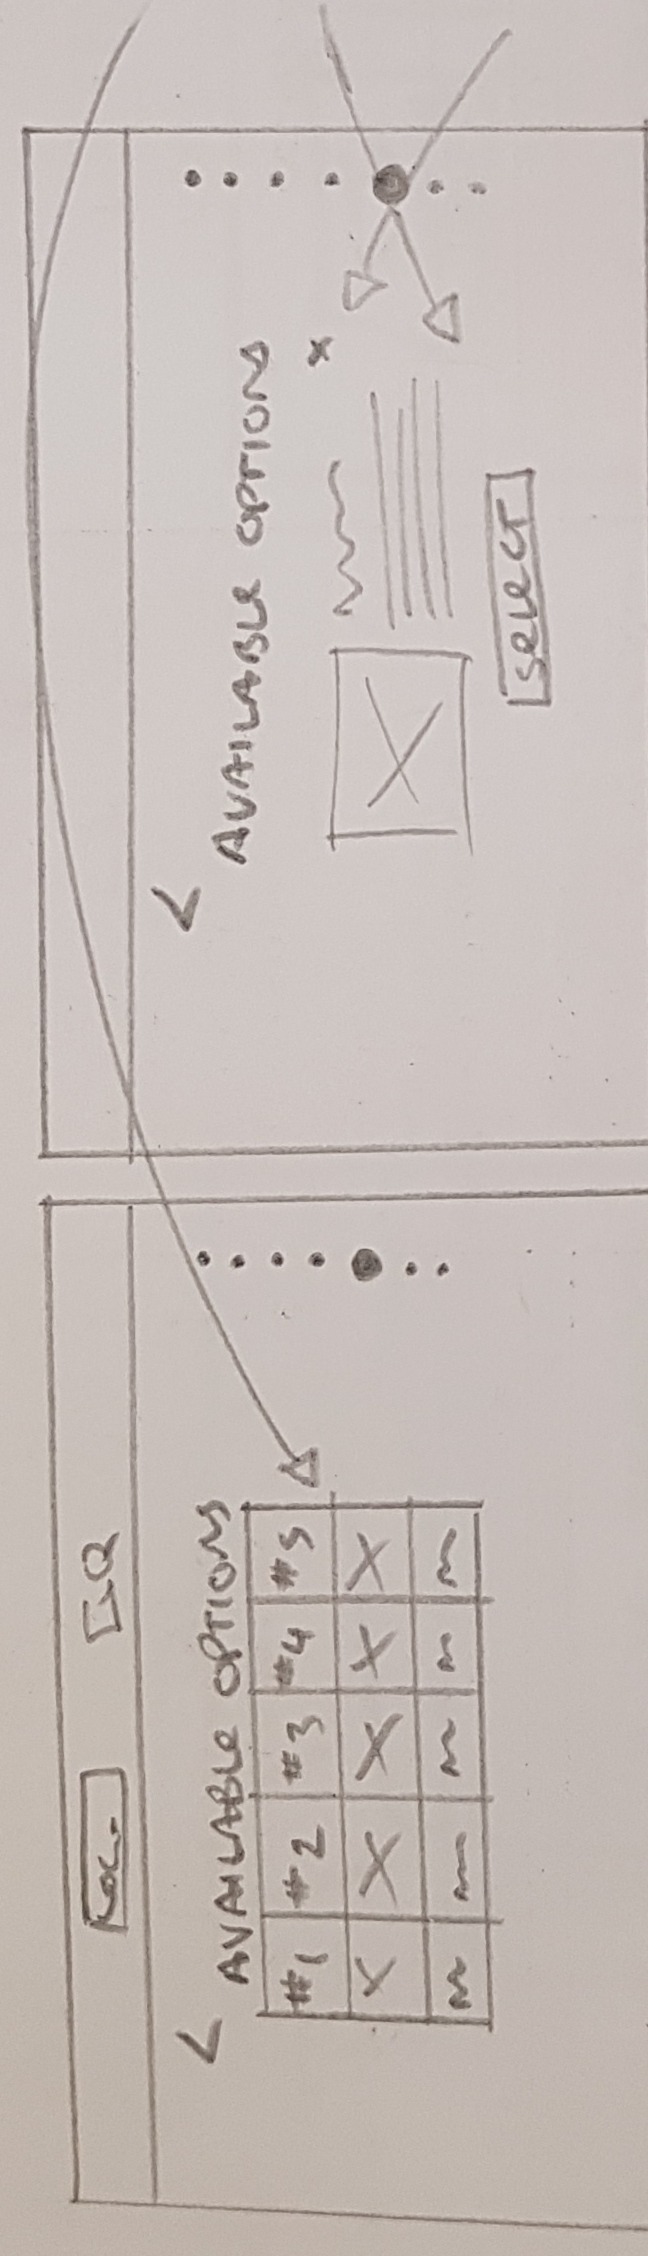 <
AVAILABLE OPTIONS
#1 #2 #3 #4 #5
X X X X X
<
AVAILABLE OPTIONS
x
SELECT